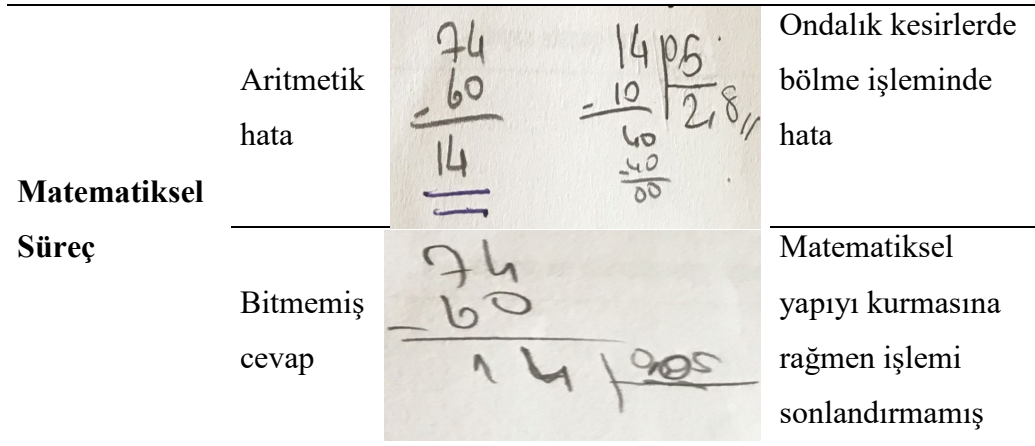 Matematiksel
Süreç
Aritmetik
hata
74
- 60
14
14 05
- 10 2,8
40
- 40
00
Ondalık kesirlerde
bölme işleminde
hata
Bitmemiş
cevap
74
- 60
14
Matematiksel
yapıyı kurmasına
rağmen işlemi
sonlandırmamış